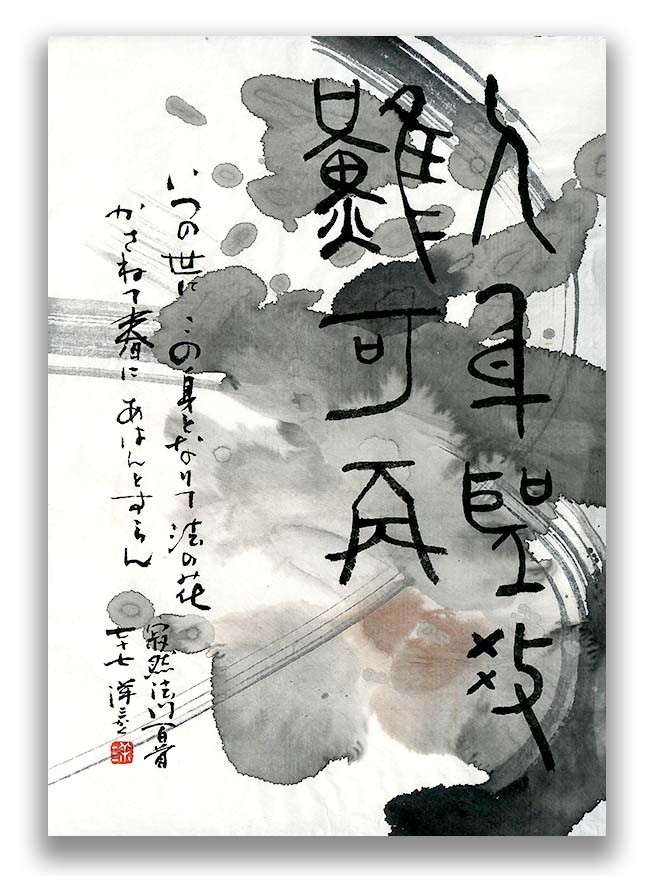 人身聖教
難可再
いつの世にこの身となりて法の花
かさねて春にあはんとすらん
寂然法門百首
七十七 洋三